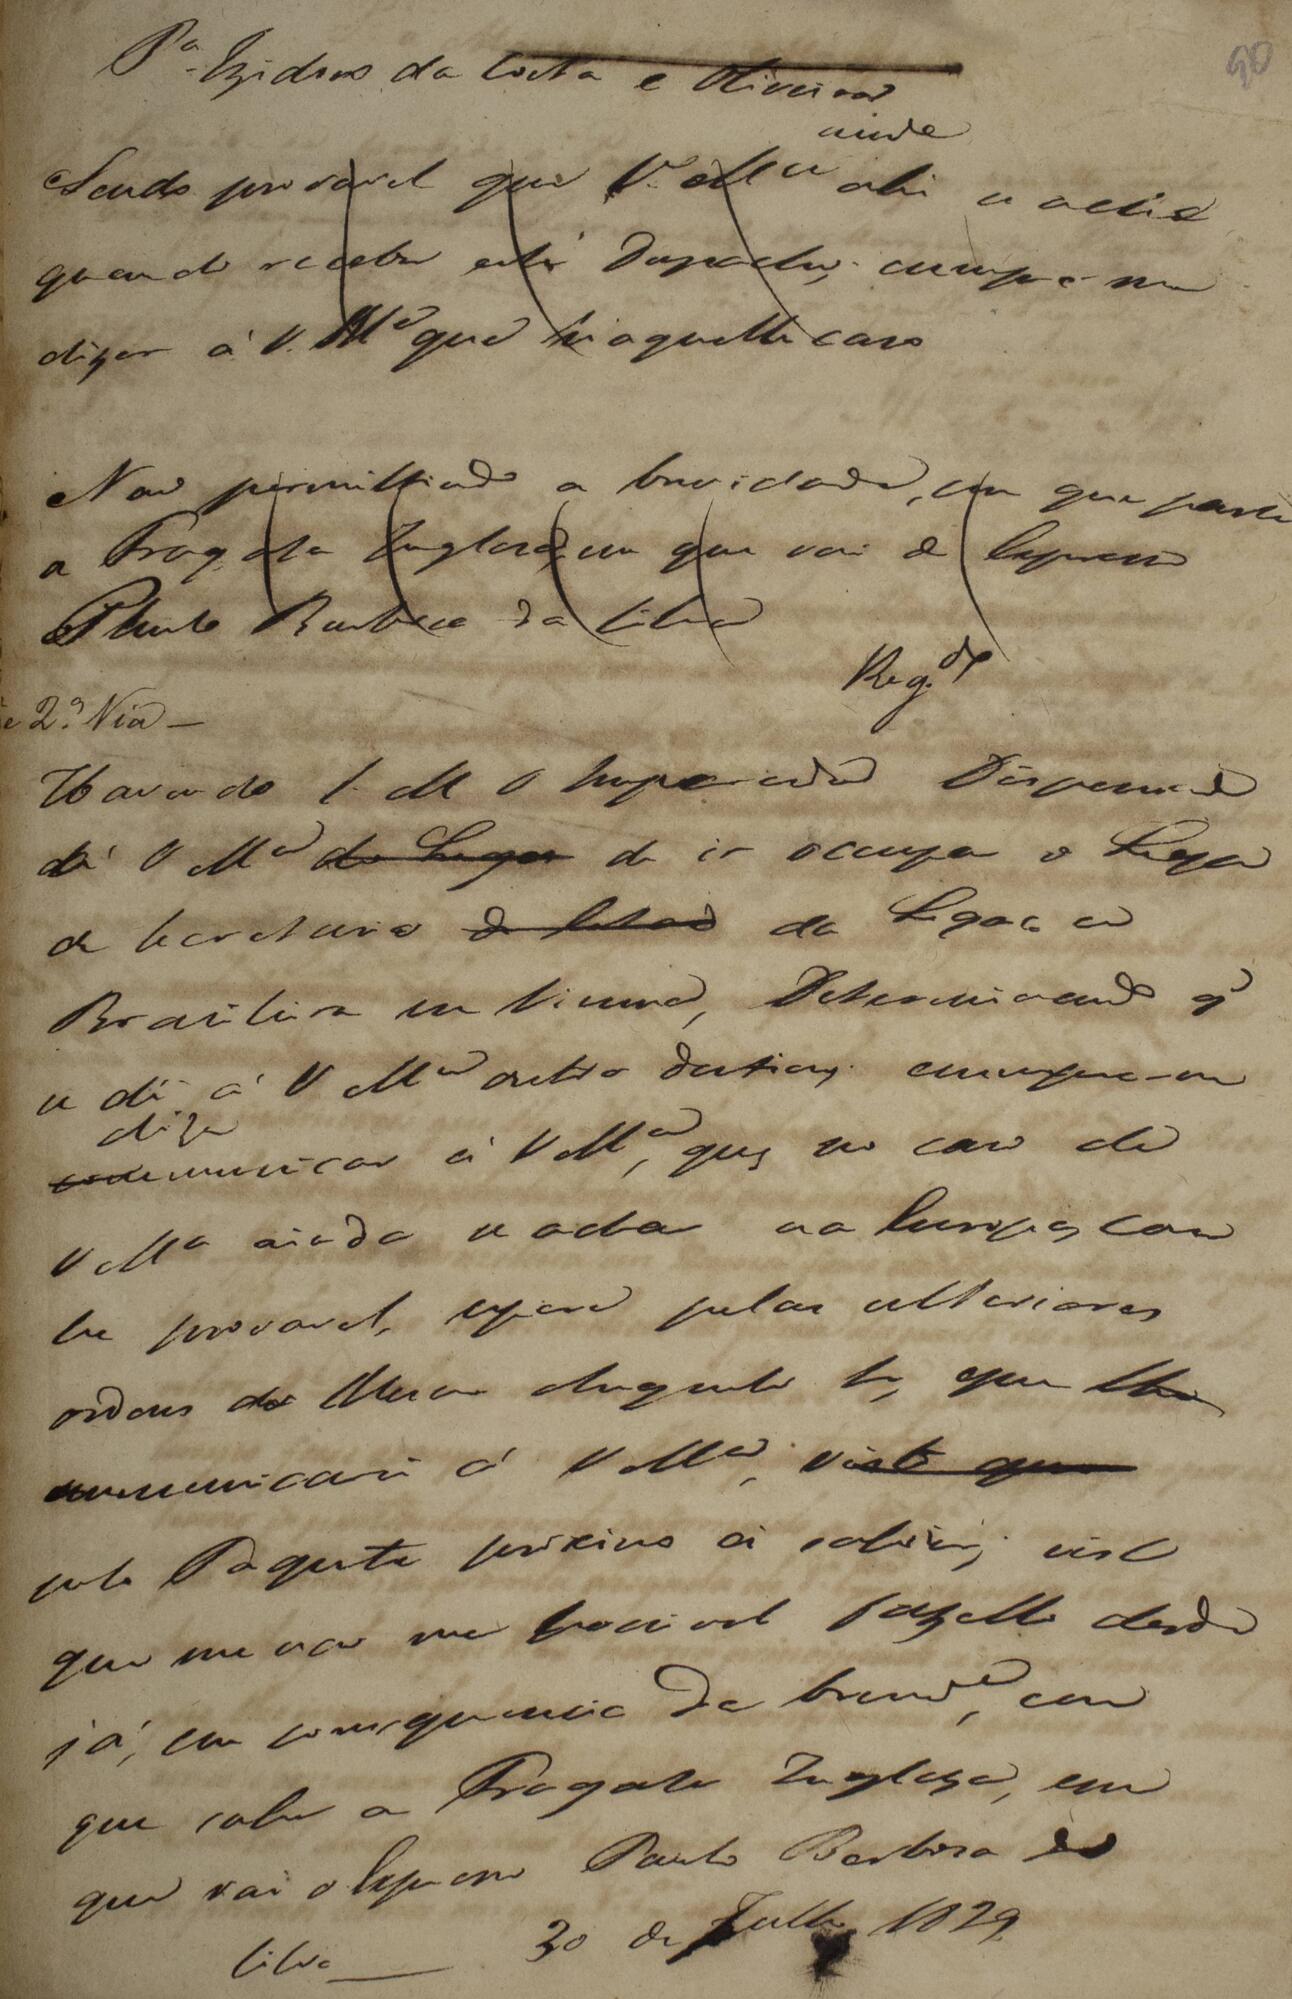 90
P.ª Izidoro da Costa e Oliveira
ainda
Sendo provavel que V. M.ce ahi se ache
quando receba este Despacho, cumpre-me
dizer á V. M.ce que n'aquelle caso
Não permittindo a brevidade, em que parte
a Fragata Ingleza, em que vai de Expresso
Paulo Barboza da Silva
Reg.do
e 2.ª Via —
Havendo S. M. O Imperador Dispensado
á V M.ce do Lugar de ir occupar o Lugar
de Secretario da Legação
Brasileira em Vienna, Determinando q̃
se dê á V M.ce outro destino; cumpre-me
dizer
communicar á V M.ce, que, no caso de
V M.ce ainda se achar na Europa, como
he provavel, espere pelas ulteriores
ordens do Mesmo Augusto Sr., que lhe
communicarei á V M.ce, visto que
pelo Paquete proximo á sahir; visto
que me não he possivel fazello desde
já, em consequencia da brevid.e, com
que sahe a Fragata Ingleza, em
que vai o Expresso Paulo Barboza da
Silva — 30 de Julho 1829